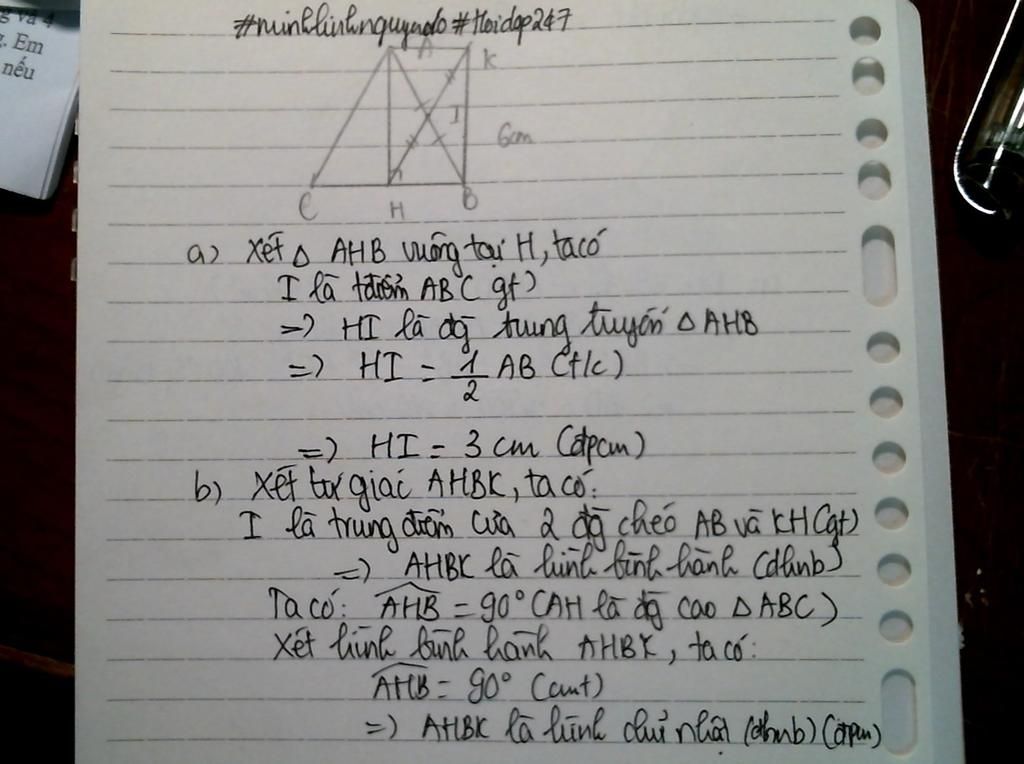 g và 4
g. Em
nếu
#minhlinhnguyndo #Hoidap247
A
K
I
6cm
C
H
B
a) Xét Δ AHB vuông tại H, ta có
I là tđiểm AB (gt)
=> HI là đg trung tuyến Δ AHB
=> HI = 1/2 AB (t/c)
=> HI = 3 cm (đpcm)
b) Xét tứ giác AHBK, ta có:
I là trung điểm của 2 đg chéo AB và KH (gt)
=> AHBK là hình bình hành (dhnb)
Ta có: AHB = 90° (AH là đg cao Δ ABC)
Xét hình bình hành AHBK, ta có:
AHB = 90° (cmt)
=> AHBK là hình chữ nhật (dhnb) (đpcm)